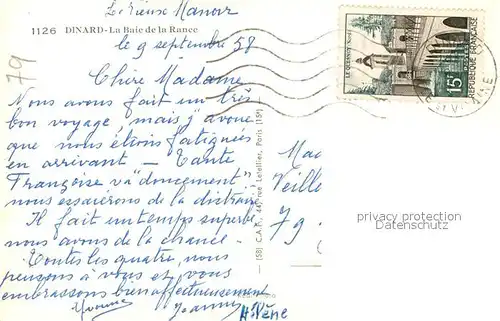 Le Vieux Manoir
1126 DINARD - La Baie de la Rance
le 9 septembre 58
79
Chère Madame
Nous avons fait un très
bon voyage mais j'avoue
que nous étions fatiguées
en arrivant — Tante
Françoise va "doucement"
nous essaierons de la distraire
Il fait un temps superbe
nous avons de la chance.
Toutes les quatre, nous
pensons à vous et vous
embrassons bien affectueusement
Yvonne Jeanne Hélène
(58) C.A.P., 44, rue Letellier, Paris (15e)
LE QUESNOY Nord
15F
REPUBLIQUE FRANÇAISE
Mad
Veille
79
privacy protection
Datenschutz